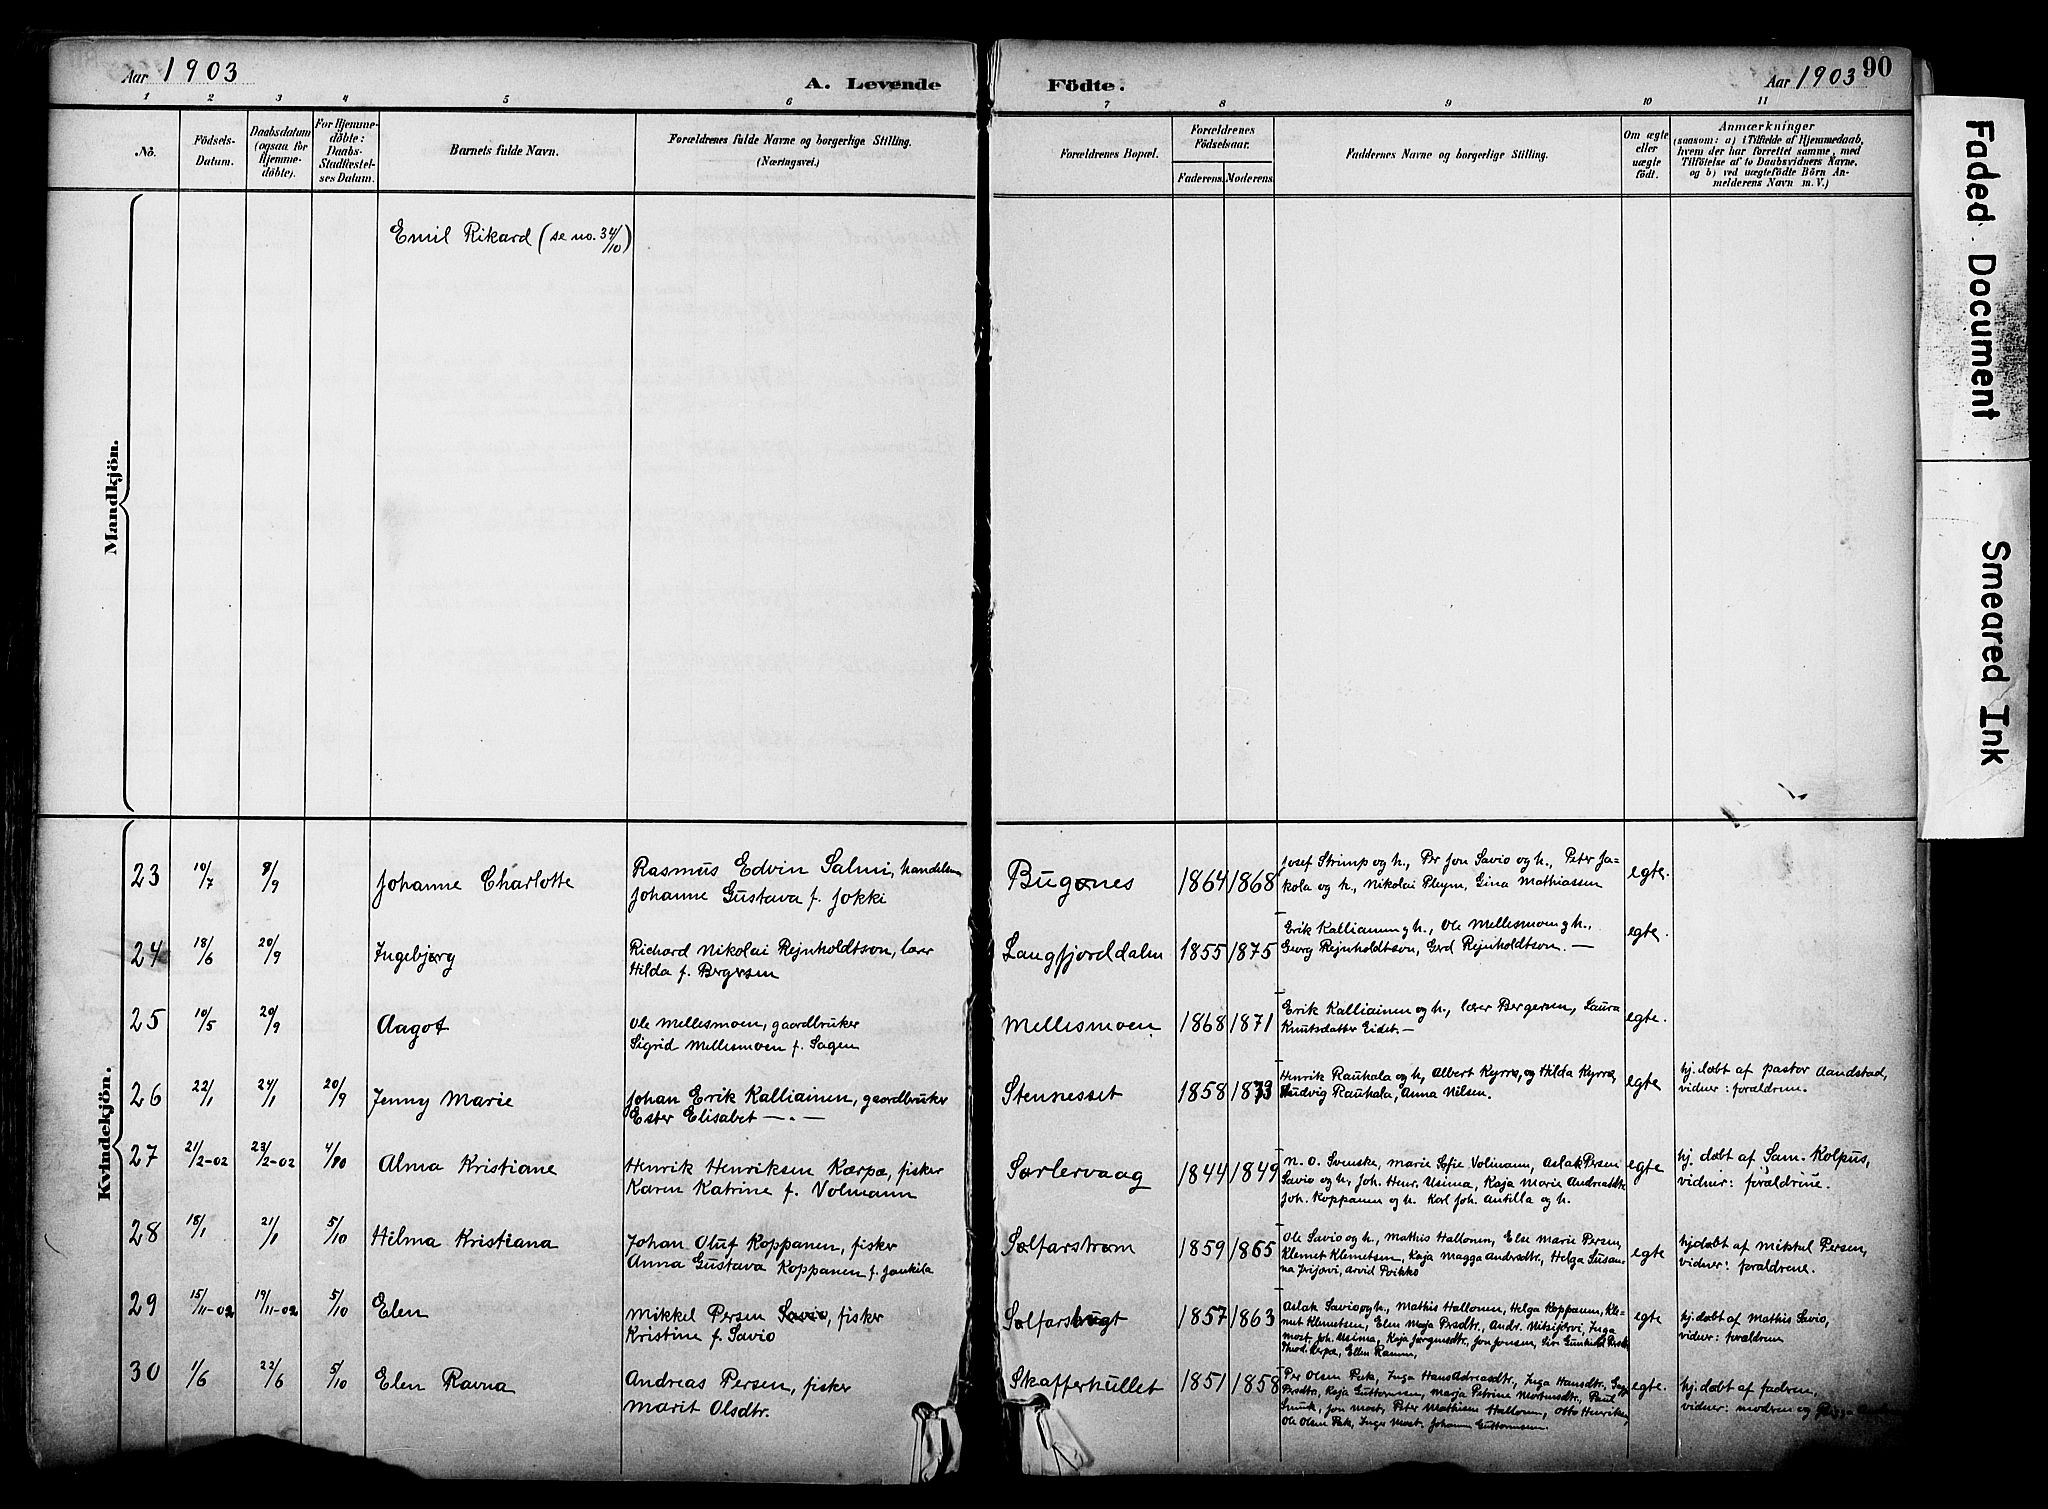 Aar 1903
A. Levende
Födte.
Aar 1903
90
1 2 3 4 5 6 7 8 9 10 11
No.
Födsels-
Datum.
Daabsdatum
(ogsaa for
Hjemme-
döbte).
For Hjemme-
döbte:
Daabs-
Stadfæstel-
ses Datum.
Barnets fulde Navn.
Forældrenes fulde Navne og borgerlige Stilling.
(Næringsvei.)
Forældrenes Bopæl.
Forældrenes
Födselsaar.
Faderens. Moderens.
Faddernes Navne og borgerlige Stilling.
Om ægte
eller
uægte
födt.
Anmærkninger
(saasom: a) i Tilfælde af Hjemmedaab,
hvem der har forrettet samme, med
Tilföielse af to Daabsvidners Navne,
og b) ved uægtefödte Börn An-
melderens Navn m. V.)
Mandkjön.
Emil Rikard (se no. 34/10)
Kvindekjön.
23 10/7 8/9 Johanne Charlotte
Rasmus Edvin Salmi, handelsm
Johanne Gustava f. Jokki
Bugønes 1864 1868
Josef Strimp og h., Per Jon Savio og h., Peter Ja-
kola og h., Nikolai Pleym, Gina Mathiassen
egte.
24 18/6 20/9 Ingebjørg
Richard Nikolai Rejnholdtson, lærer
Hilda f. Bergersen
Langfjorddalen 1855 1875
Erik Kalliainen og h., Ole Mellesmoen og h.,
Georg Rejnholdtson, Gerd Rejnholdtson. —
egte.
25 10/5 20/9 Aagot
Ole Mellesmoen, gaardbruker
Sigrid Mellesmoen f. Sagen
Mellesmoen 1868 1871
Erik Kalliainen og h., lærer Bergersen, Laura
Knutsdatter Eidet. —
egte.
26 22/1 24/1 20/9 Jenny Marie
Johan Erik Kalliainen, gaardbruker
Ester Elisabet — . —
Stennesset 1858 1873
Henrik Rauhala og h, Albert Kyrrø, og Hilda Kyrrø,
Ludvig Rauhala, Anna Nilsen.
egte
hj. døbt af pastor Aandstad,
vidner: forældrene.
27 21/2-02 23/2-02 4/10 Alma Kristiane
Henrik Henriksen Kærpæ, fisker
Karen Katrine f. Volmann
Sørlervaag 1844 1849
N. O. Svenske, Marie Sofie Volmann, Aslak Persen
Savio og h, Joh. Henr. Usima, Kaja Marie Andreasdtr
Joh. Koppanen og h. Karl Joh. Antilla og h.
egte
hj. døbt af Sam. Kolpus,
vidner: forældrene.
28 18/1 21/1 5/10 Helma Kristiana
Johan Oluf Koppanen, fisker
Anna Gustava Koppanen f. Jankila
Sølfarstrøm 1859 1865
Ole Savio og h., Mathis Hallonen, Else Marie Persen,
Klemet Klemetsen, Kaja Magga Andrsdtr., Helga Susan-
na Frijovi, Arvid Poikko
egte
hj. døbt af Mikkel Persen,
vidner: forældrene.
29 15/11-02 19/11-02 5/10 Elen
Mikkel Persen Savio, fisker
Kristine f. Savio
Sølfarsbugt 1857 1863
Aslak Savio og h., Mathis Hallonen, Helga Koppanen, Kle-
met Klemetsen, Elen Maja Prsdtr., Andr. Nitsijervi, Inga
Most, Joh. Usima, Kaja Jørgensdtr, Jon Jonsen, Siri Gunhild
Thod. Kerpæ, Ellen Ramm,
egte
hj. døbt af Mathis Savio,
vidner: forældrene
30 1/6 22/6 5/10 Elen Ravna
Andreas Persen, fisker
Marit Olsdtr.
Skafferhullet 1851 1858
Per Olsen Pæk, Inga HansAdreasdtr., Inga Hansdtr.,
Prsdtr, Kaja Guttormsen, Marja Petrine Mortensdtr., Paul
Smuk, Jon Most, Peter Mathisen Hallonen, Otto Henriksen
Ole Olsen Pæk, Inger Most. Johann Guttormsen.
egte.
hj. døbt af fadren,
vidner: modren og
Faded Document
Smeared Ink